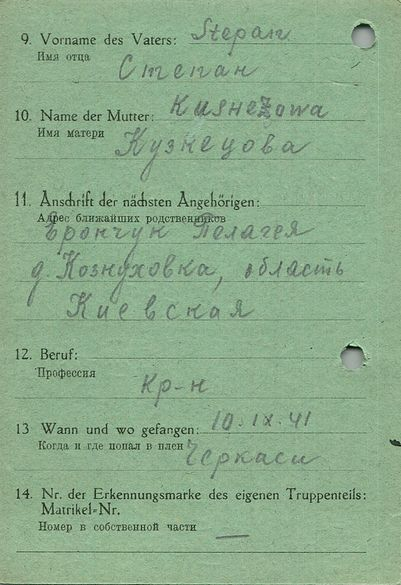 9. Vorname des Vaters: Stepan
Имя отца
Степан
10. Name der Mutter: Kusnezowa
Имя матери
Кузнецова
11. Anschrift der nächsten Angehörigen:
Адрес ближайших родственников
Ерончук Пелагея
д. Кознуховка, область
Киевская
12. Beruf:
Профессия
кр-н
13 Wann und wo gefangen: 10.IX.41
Когда и где попал в плен
Черкаси
14. Nr. der Erkennungsmarke des eigenen Truppenteils:
Matrikel-Nr.
Номер в собственной части —